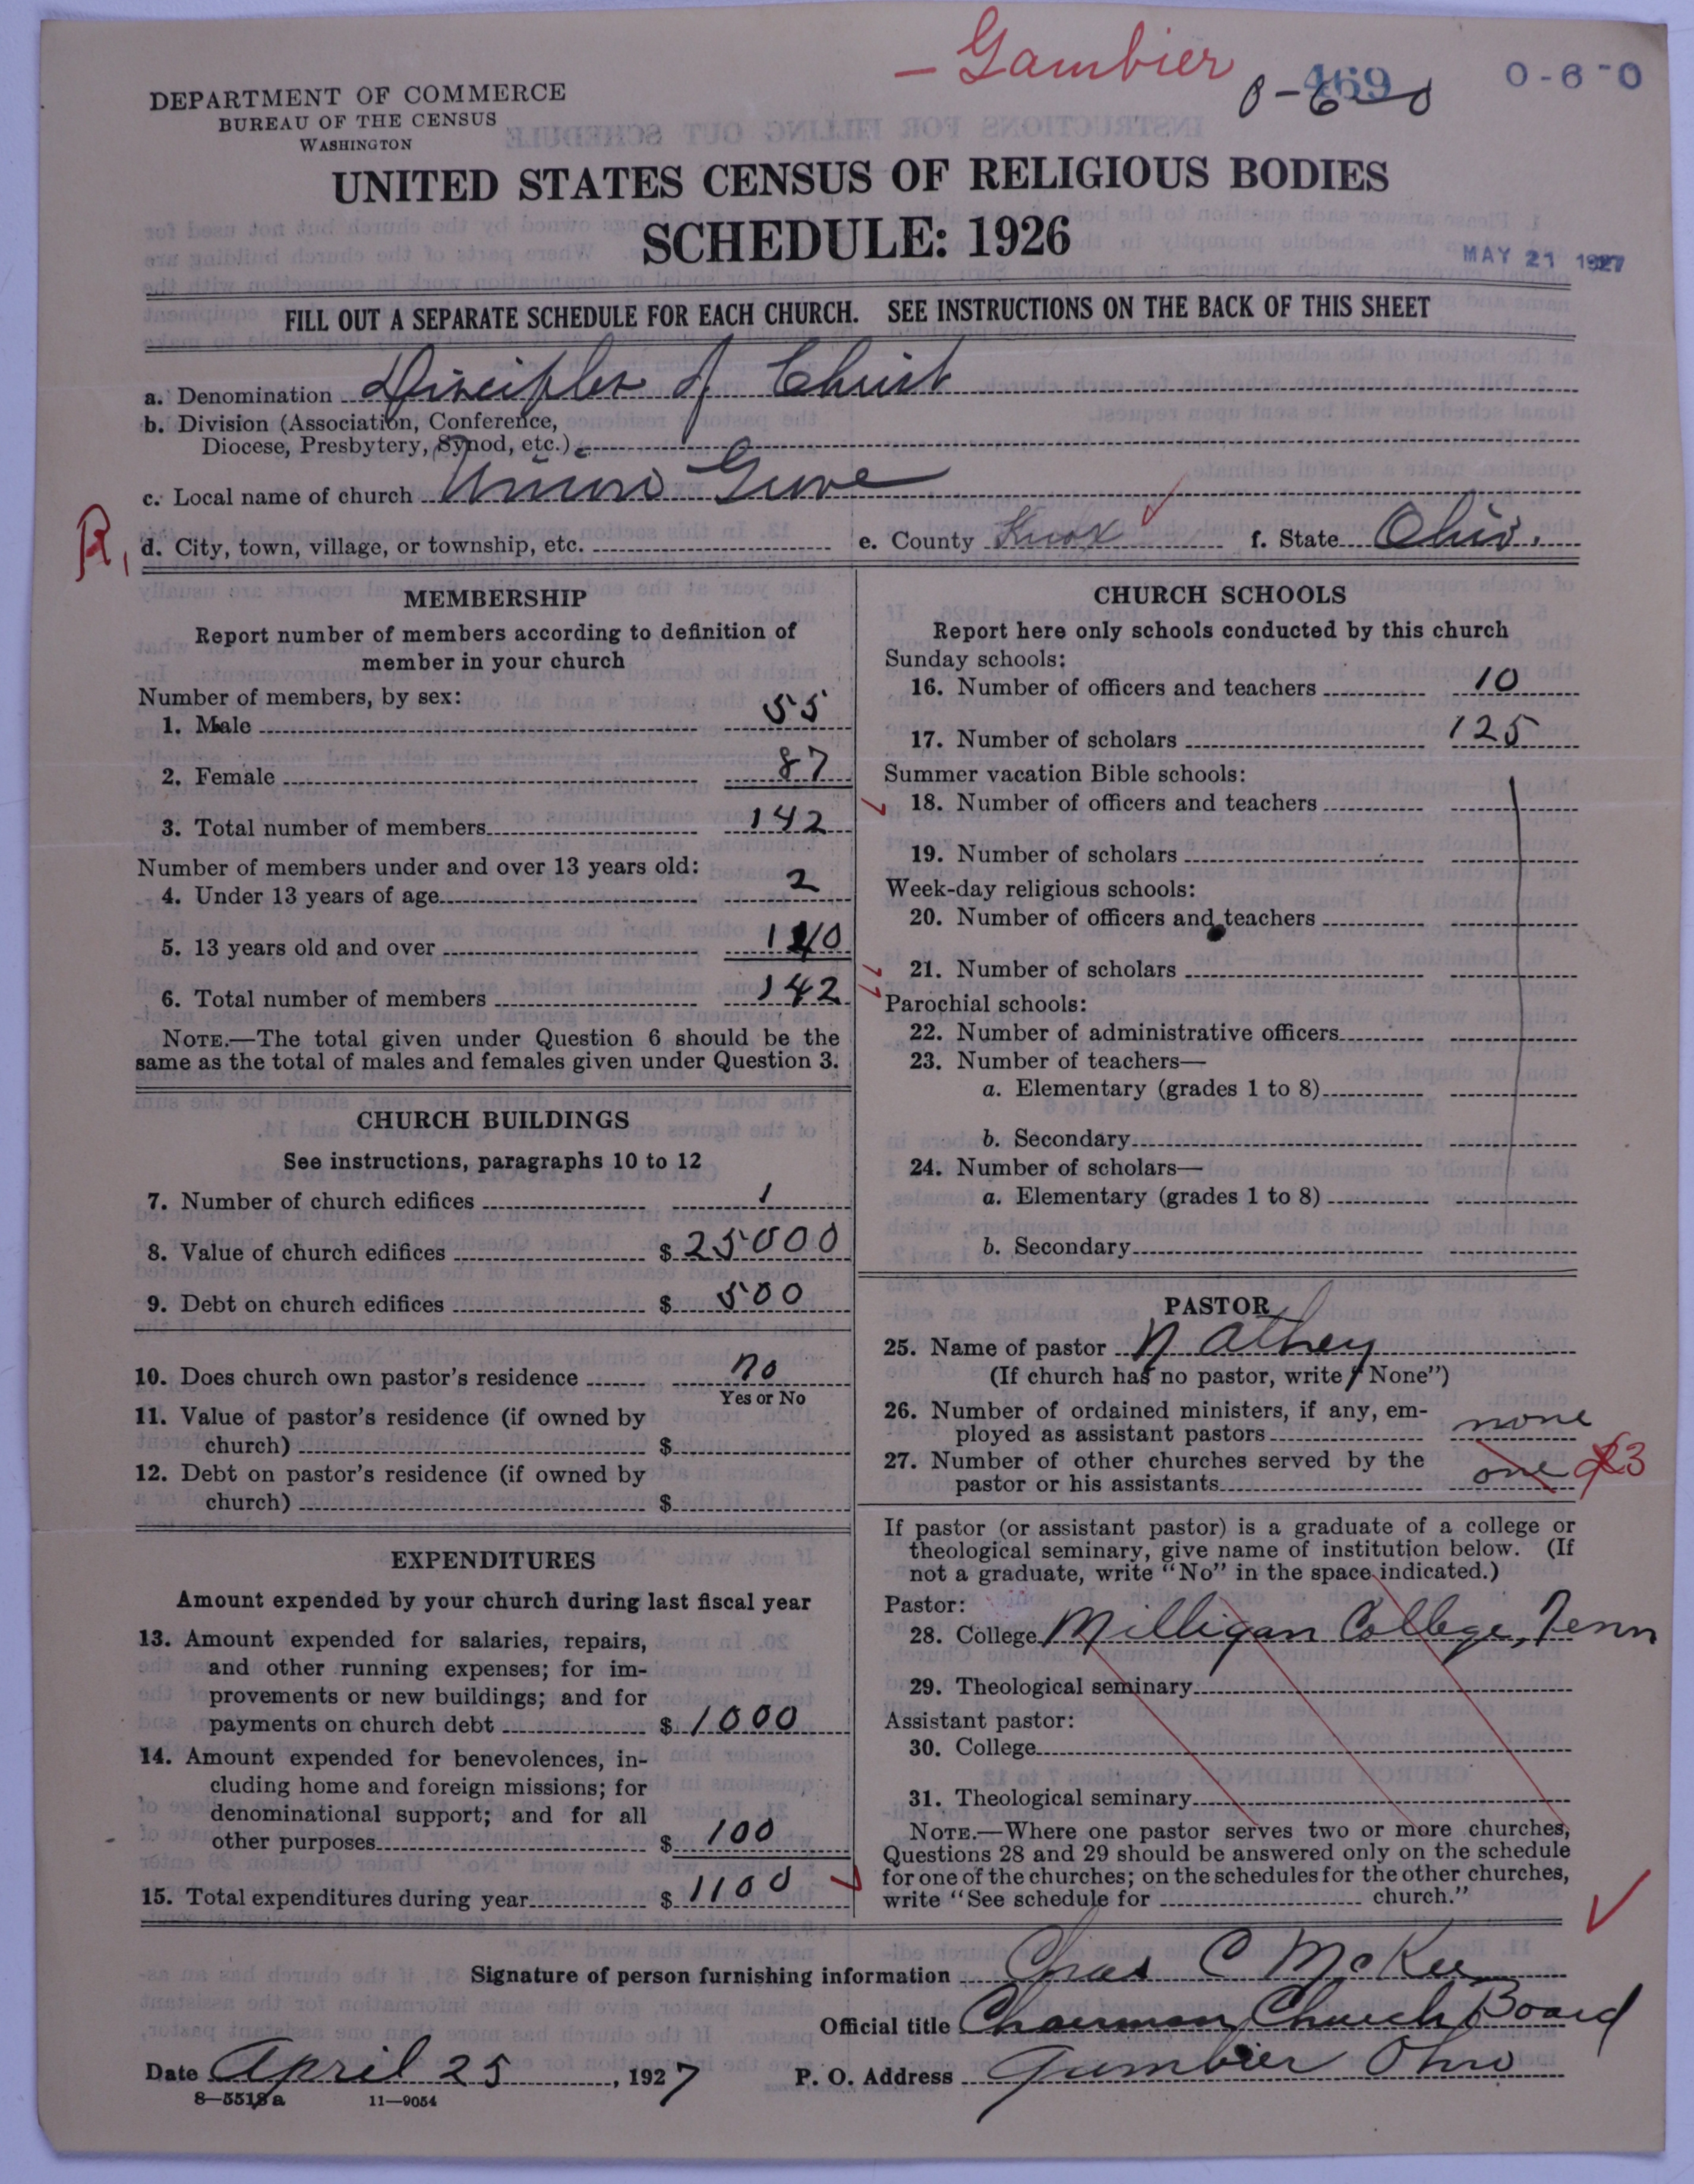 — Gambier
469
0-6-0
0-6-0
DEPARTMENT OF COMMERCE
BUREAU OF THE CENSUS
WASHINGTON
UNITED STATES CENSUS OF RELIGIOUS BODIES
SCHEDULE: 1926
MAY 21 1927
FILL OUT A SEPARATE SCHEDULE FOR EACH CHURCH. SEE INSTRUCTIONS ON THE BACK OF THIS SHEET
a. Denomination Disciples of Christ
b. Division (Association, Conference,
Diocese, Presbytery, Synod, etc.)
c. Local name of church Union Grove
R.
d. City, town, village, or township, etc. e. County Knox f. State Ohio.
MEMBERSHIP
Report number of members according to definition of
member in your church
Number of members, by sex:
1. Male 55
2. Female 87
3. Total number of members 142
Number of members under and over 13 years old:
4. Under 13 years of age 2
5. 13 years old and over 140
6. Total number of members 142
NOTE.—The total given under Question 6 should be the
same as the total of males and females given under Question 3.
CHURCH BUILDINGS
See instructions, paragraphs 10 to 12
7. Number of church edifices 1
8. Value of church edifices $ 25000
9. Debt on church edifices $ 500
10. Does church own pastor's residence no
Yes or No
11. Value of pastor's residence (if owned by
church) $
12. Debt on pastor's residence (if owned by
church) $
EXPENDITURES
Amount expended by your church during last fiscal year
13. Amount expended for salaries, repairs,
and other running expenses; for im-
provements or new buildings; and for
payments on church debt $ 1000
14. Amount expended for benevolences, in-
cluding home and foreign missions; for
denominational support; and for all
other purposes $ 100
15. Total expenditures during year $ 1100
CHURCH SCHOOLS
Report here only schools conducted by this church
Sunday schools:
16. Number of officers and teachers 10
17. Number of scholars 125
Summer vacation Bible schools:
18. Number of officers and teachers
19. Number of scholars
Week-day religious schools:
20. Number of officers and teachers
21. Number of scholars
Parochial schools:
22. Number of administrative officers
23. Number of teachers—
a. Elementary (grades 1 to 8)
b. Secondary
24. Number of scholars—
a. Elementary (grades 1 to 8)
b. Secondary
PASTOR
25. Name of pastor N Athey
(If church has no pastor, write "None")
26. Number of ordained ministers, if any, em-
ployed as assistant pastors none
27. Number of other churches served by the
pastor or his assistants one 3
If pastor (or assistant pastor) is a graduate of a college or
theological seminary, give name of institution below. (If
not a graduate, write "No" in the space indicated.)
Pastor:
28. College Milligan College, Tenn
29. Theological seminary
Assistant pastor:
30. College
31. Theological seminary
NOTE.—Where one pastor serves two or more churches,
Questions 28 and 29 should be answered only on the schedule
for one of the churches; on the schedules for the other churches,
write "See schedule for church."
Signature of person furnishing information Chas C McKee
Official title Chairman Church Board
Date April 25, 1927 P. O. Address Gambier Ohio
8—5518a 11—9054